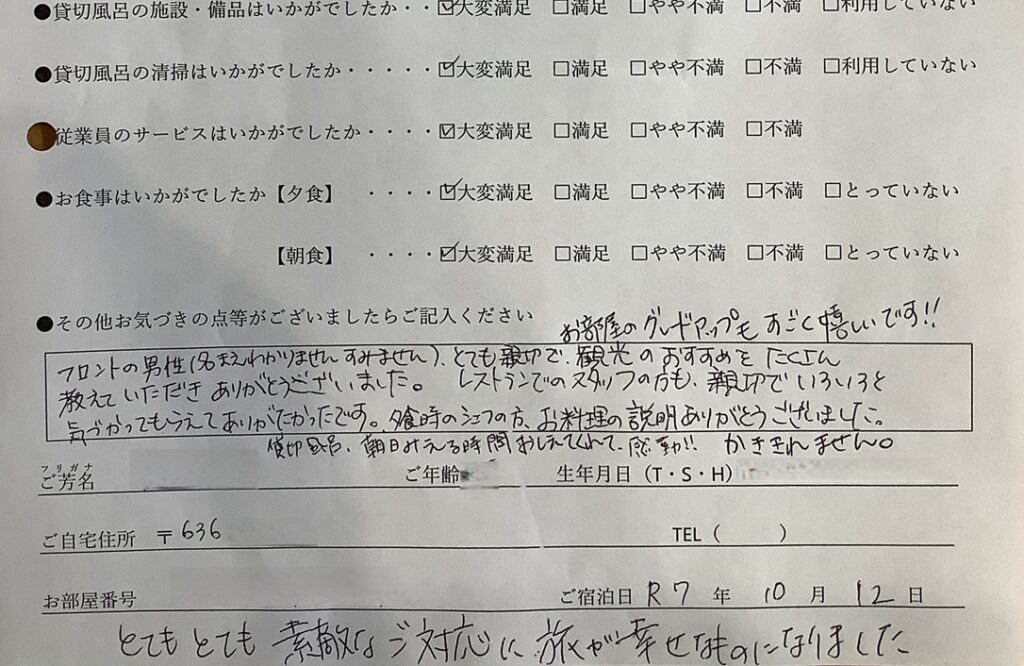 ●貸切風呂の施設・備品はいかがでしたか・・☑大変満足 □満足 □やや不満 □不満 □利用していない
●貸切風呂の清掃はいかがでしたか・・・・・☑大変満足 □満足 □やや不満 □不満 □利用していない
●従業員のサービスはいかがでしたか・・・・☑大変満足 □満足 □やや不満 □不満
●お食事はいかがでしたか【夕食】 ・・・・☑大変満足 □満足 □やや不満 □不満 □とっていない
【朝食】 ・・・・☑大変満足 □満足 □やや不満 □不満 □とっていない
●その他お気づきの点等がございましたらご記入ください
お部屋のグレードアップもすごく嬉しいです!!
フロントの男性(名まえわかりませんすみません)、とても親切で、観光のおすすめをたくさん
教えていただきありがとうございました。 レストランでのスタッフの方も、親切でいろいろと
気づかってもらえてありがたかったです。夕食時のシェフの方、お料理の説明ありがとうございました。
貸切風呂、朝日みえる時間おしえてくれて、感動!! かききれません。
フリガナ
ご芳名 ご年齢 生年月日(T・S・H)
ご自宅住所 〒636 TEL( )
お部屋番号 ご宿泊日 R7 年 10 月 12 日
とてもとても素敵なご対応に旅が幸せなものになりました